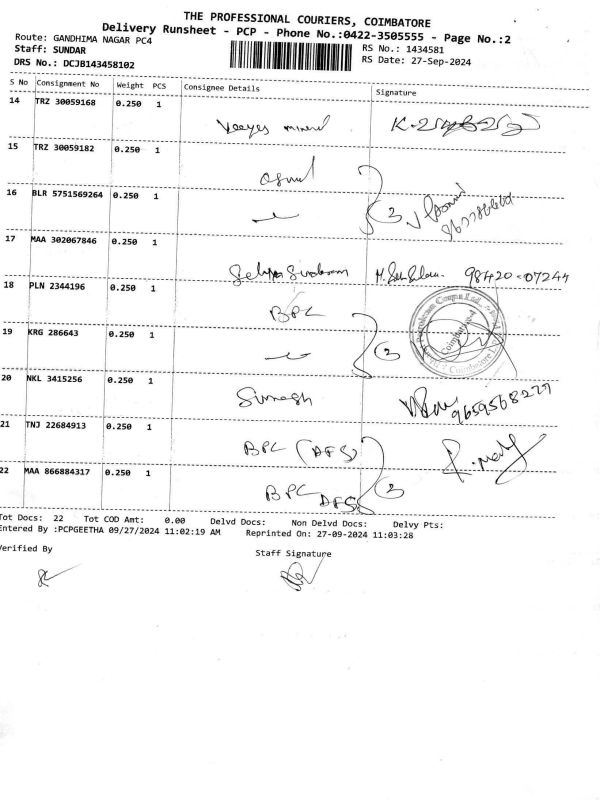 THE PROFESSIONAL COURIERS, COIMBATORE
Delivery Runsheet - PCP - Phone No.:0422-3505555 - Page No.:2
Route: GANDHIMA NAGAR PC4
RS No.: 1434581
Staff: SUNDAR
RS Date: 27-Sep-2024
DRS No.: DCJB143458102
S No Consignment No Weight PCS Consignee Details Signature
14 TRZ 30059168 0.250 1
15 TRZ 30059182 0.250 1
16 BLR 5751569264 0.250 1
17 MAA 302067846 0.250 1
98420-07244
18 PLN 2344196 0.250 1
BPC
19 KRG 286643 0.250 1
20 NKL 3415256 0.250 1
9659568279
21 TNJ 22684913 0.250 1
BPC (AFS)
22 MAA 866884317 0.250 1
BPC AFS
Tot Docs: 22 Tot COD Amt: 0.00 Delvd Docs: Non Delvd Docs: Delvy Pts:
Entered By :PCPGEETHA 09/27/2024 11:02:19 AM Reprinted On: 27-09-2024 11:03:28
Verified By
Staff Signature